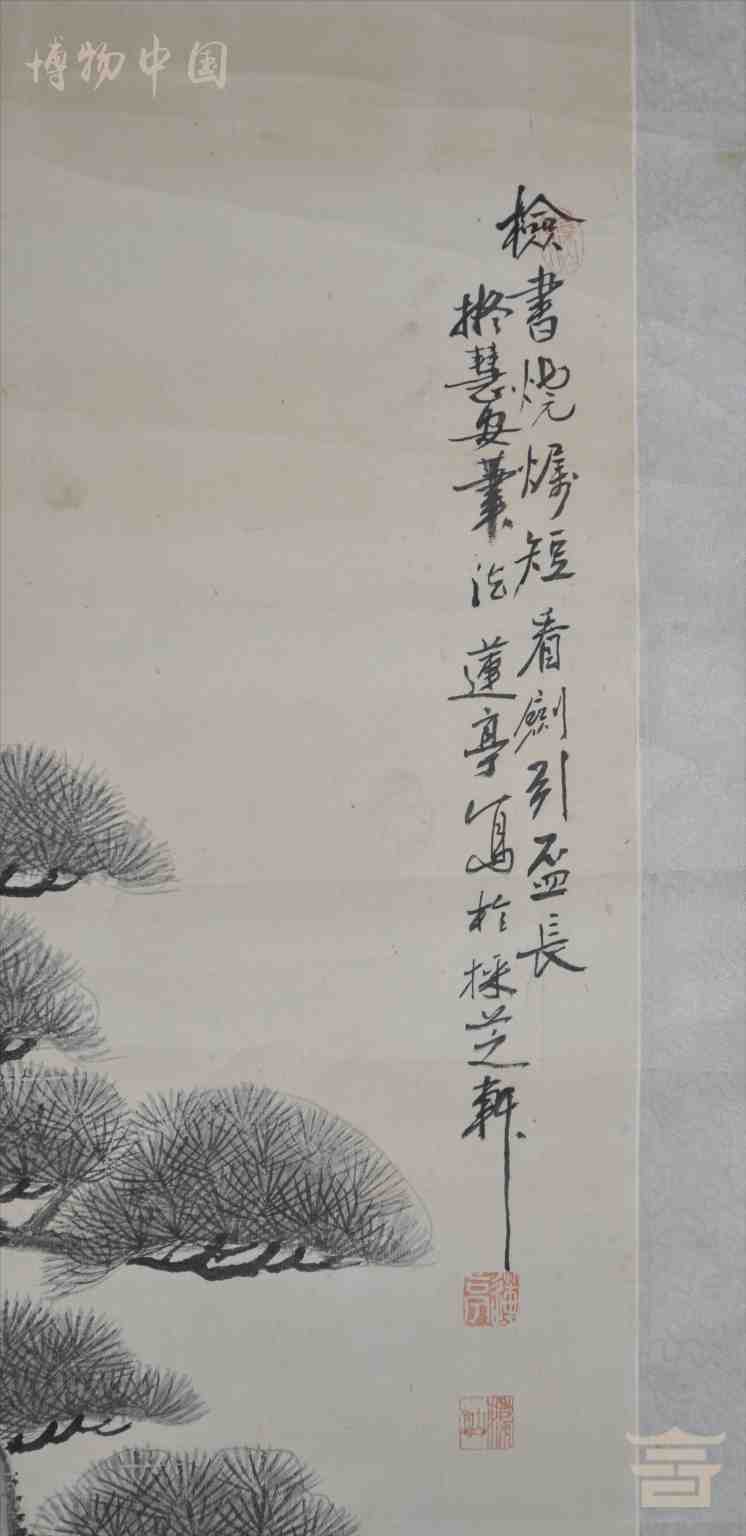 博物中国
檢書燒燭短看劍引盃長
擬慧安筆法蓮亭寫於採芝軒